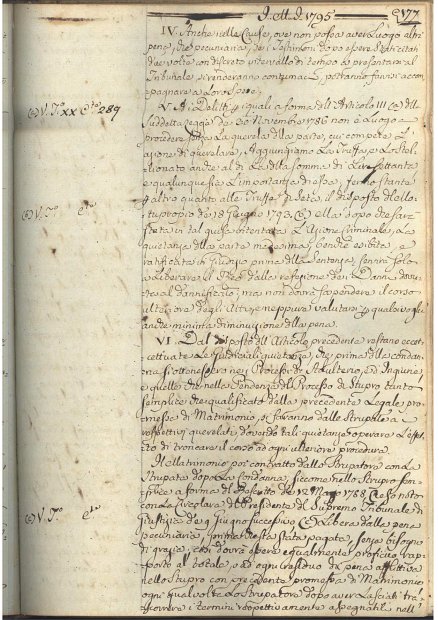 1795
177
IV. Anche nelle Cause, ove non possa aver luogo altri
pena, che pecuniaria, se i Testimoni dopo essere stati citati
due volte con discreto intervallo di tempo a presentarsi al
Tribunale, si renderanno contumaci, potranno farsi accom
pagnare a loro
(a) V. To. XX c. 289
V. Ai Delitti, quali a forma dell'Articolo III (a) della
suddetta Legge de 30 Novembre 1786 non è luogo a
procedere senza la querela della parte, cui compete l'
azione di querelare, aggiungiamo la Truffa, e lo Stel
lionato anche al di là della somma di Lire settanta
e qualunque sia l'importanza di essa, fermo stante
altro quanto alle Truffe di Sete, il disposto del Mo
tuproprio de 18 Giugno 1793. (b) E alla dopo che sarà
(b) V. To.
stata in tal guisa intentata l'azione criminale, la
quietanza della parte medesima, benché esibita e
ratificata in Giudizio prima della Sentenza, servirà solo
a liberare il Reo dalla refezione dei Danni dovu
ta al danneggiato, ma non dovrà sospendere il corso
ulteriore degli Atti, e neppure valutarsi per qualsivogli
anche minima diminuzione della pena.
VI. Dal disposto dell'Articolo precedente restano eccet
tuate le Giudiciali quietanze, che prima della condan
na si otterranno nei Processi di Adulterio, ed Ingiurie,
e quelle che nella Pendenza del Processo di Stupro tanto
semplice che qualificato dalla precedente legale pro
messa di Matrimonio, si faranno dalle Stuprate a
rispettivi querelati, dovendo tali quietanze operare l'effet
to di troncare il corso ad ogni ulteriore procedura.
Il Matrimonio poi contratto dallo Stupratore con la
Stuprata dopo la Condanna, siccome nello Stupro sem
plice a forma del Rescritto de 12 Mag. 1788.
(c) V. To.
con la Circolare del Presidente del Supremo Tribunale di
Giustizia de 9 Giugno successivo (c) libera dalla pena
pecuniaria, quando non sia stata pagata, senza bisogno
di grazia, così dovrà essere egualmente proficuo, rap
porto al totale, o ad ogni residuo di pena afflittiva
nello Stupro con precedente promessa di Matrimonio,
ogni qualvolta lo Stupratore dopo aver lasciati tra
scorrere i termini rispettivamente assegnatili nell'